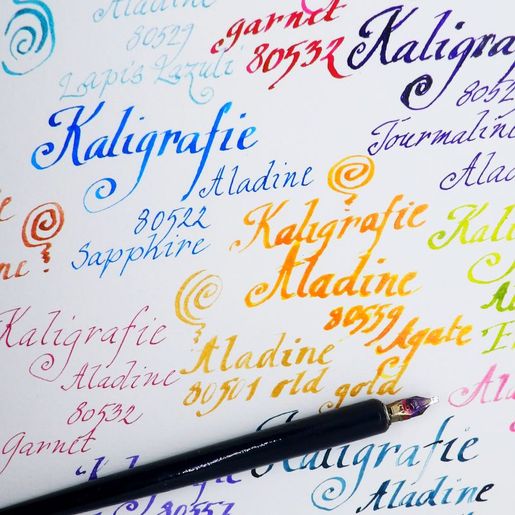 Aladine
80529
Lapis Lazuli
garnet
80532
Kaligra
8052
Tourmaline
Alad
Kaligrafie
Aladine
80522
Sapphire
Kaligrafie
Aladine
80539
Agate
Kaligrafie
Aladine
80532
Garnet
Aladine
80501 old gold
Kali
Kaligrafie
Aladine
80557